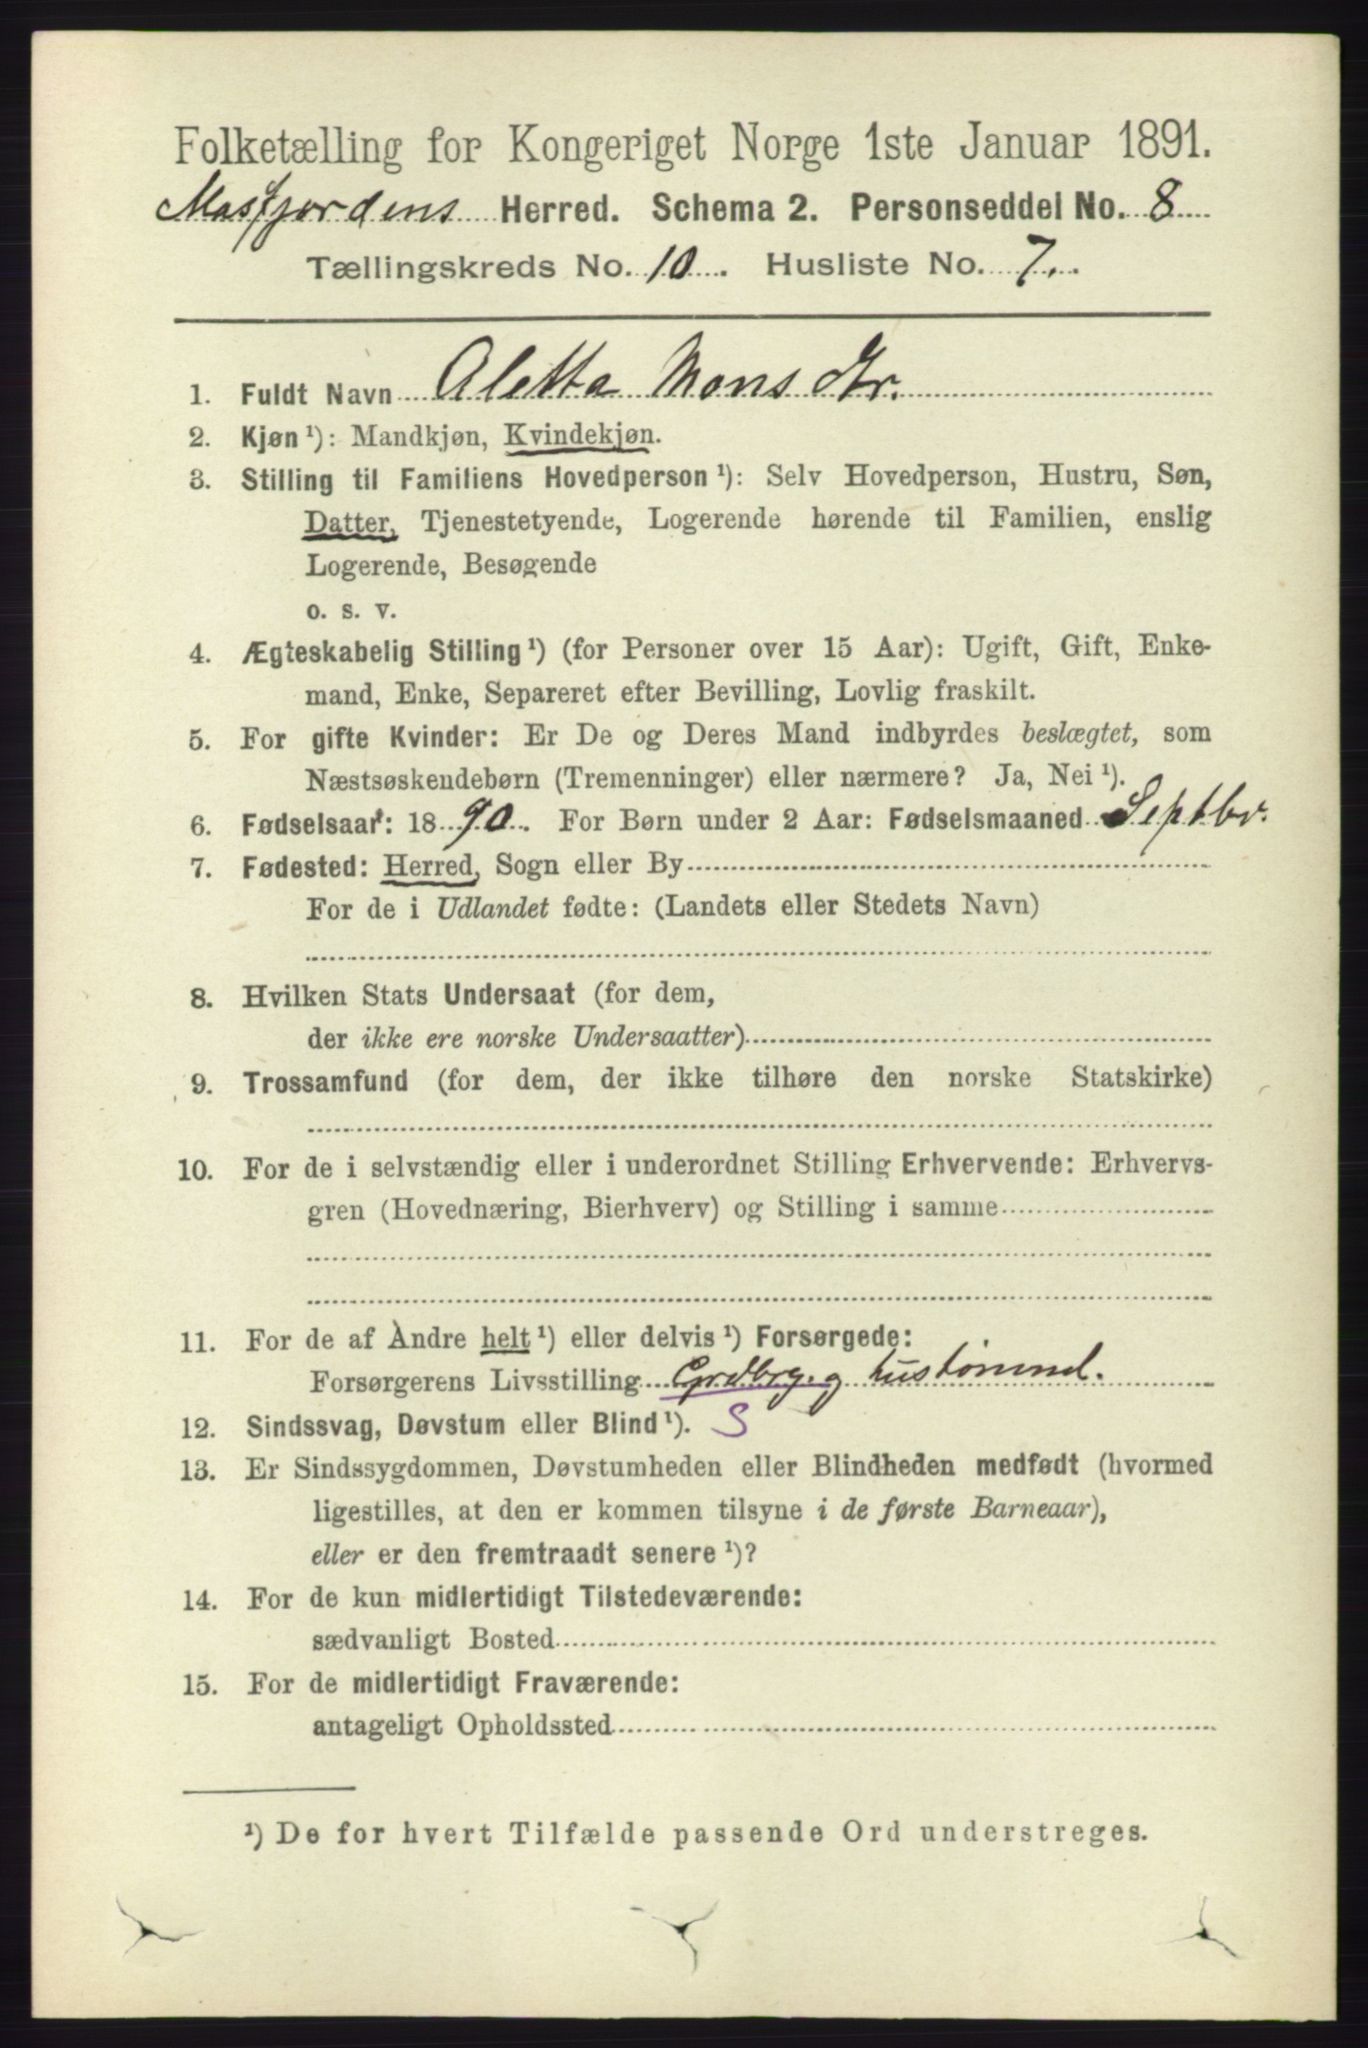 Folketælling for Kongeriget Norge 1ste Januar 1891.
Masfjordens Herred. Schema 2. Personseddel No. 8
Tællingskreds No. 10. Husliste No. 7.
1. Fuldt Navn Aletta Monsdtr.
2. Kjøn ¹): Mandkjøn, Kvindekjøn.
3. Stilling til Familiens Hovedperson ¹): Selv Hovedperson, Hustru, Søn,
Datter, Tjenestetyende, Logerende hørende til Familien, enslig
Logerende, Besøgende
o. s. v.
4. Ægteskabelig Stilling ¹) (for Personer over 15 Aar): Ugift, Gift, Enke-
mand, Enke, Separeret efter Bevilling, Lovlig fraskilt.
5. For gifte Kvinder: Er De og Deres Mand indbyrdes beslægtet, som
Næstsøskendebørn (Tremenninger) eller nærmere? Ja, Nei ¹).
6. Fødselsaar: 1890. For Børn under 2 Aar: Fødselsmaaned Septbr.
7. Fødested: Herred, Sogn eller By
For de i Udlandet fødte: (Landets eller Stedets Navn)
8. Hvilken Stats Undersaat (for dem,
der ikke ere norske Undersaatter)
9. Trossamfund (for dem, der ikke tilhøre den norske Statskirke)
10. For de i selvstændig eller i underordnet Stilling Erhvervende: Erhvervs-
gren (Hovednæring, Bierhverv) og Stilling i samme
11. For de af Andre helt ¹) eller delvis ¹) Forsørgede:
Forsørgerens Livsstilling Grdbrg. g
12. Sindssvag, Døvstum eller Blind ¹). S
13. Er Sindssygdommen, Døvstumheden eller Blindheden medfødt (hvormed
ligestilles, at den er kommen tilsyne i de første Barneaar),
eller er den fremtraadt senere ¹)?
14. For de kun midlertidigt Tilstedeværende:
sædvanligt Bosted
15. For de midlertidigt Fraværende:
antageligt Opholdssted
¹) De for hvert Tilfælde passende Ord understreges.